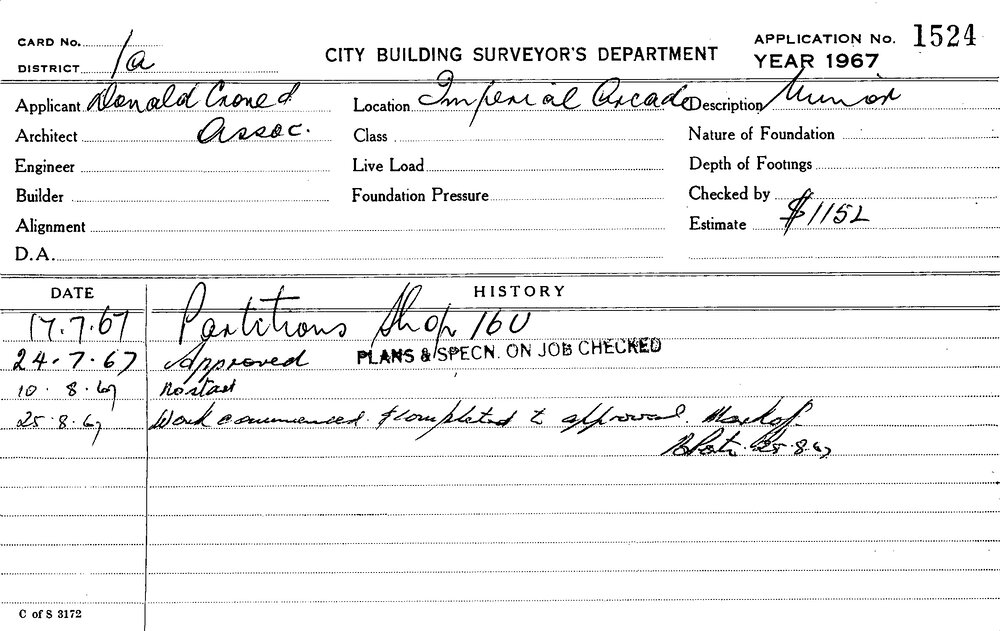 CARD No.
DISTRICT 1a
CITY BUILDING SURVEYOR'S DEPARTMENT
APPLICATION No. 1524
YEAR 1967
Applicant Donald Crone &
Location Imperial Arcade
Description Minor
Architect Assoc.
Class
Nature of Foundation
Engineer
Live Load
Depth of Footings
Builder
Foundation Pressure
Checked by
Alignment
Estimate $1152
D.A.
DATE HISTORY
17.7.67 Partitions Shop 16U
24.7.67 Approved PLANS & SPECN. ON JOB CHECKED
10.8.67 No start
25.8.67 Work commenced & completed to approval. Mark off.
25.8.67
C of S 3172